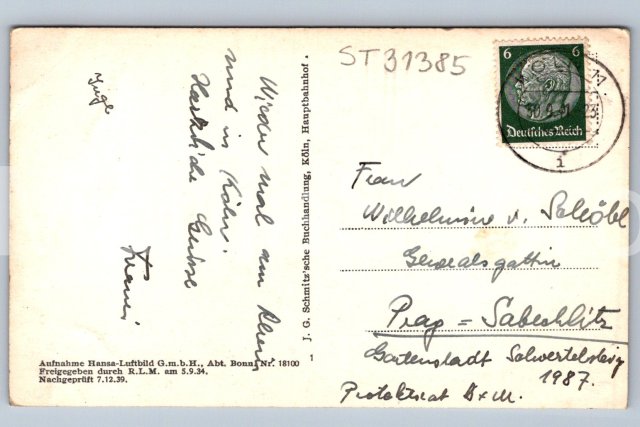 ST31385
6 6
Deutsches Reich
KÖLN
i
Wieder mal am Rhein
und in Köln.
Herzliche Grüsse
Franzi
J. G. Schmitz'sche Buchhandlung, Köln, Hauptbahnhof.
1
Frau
Wilhelmine v. Schöbl
Generalsgattin
Prag = Sabechlitz
Gartenstadt
1987.
Protektorat B+M.
Aufnahme Hansa-Luftbild G.m.b.H., Abt. Bonn, Nr. 18100
Freigegeben durch R.L.M. am 5.9.34.
Nachgeprüft 7.12.39.